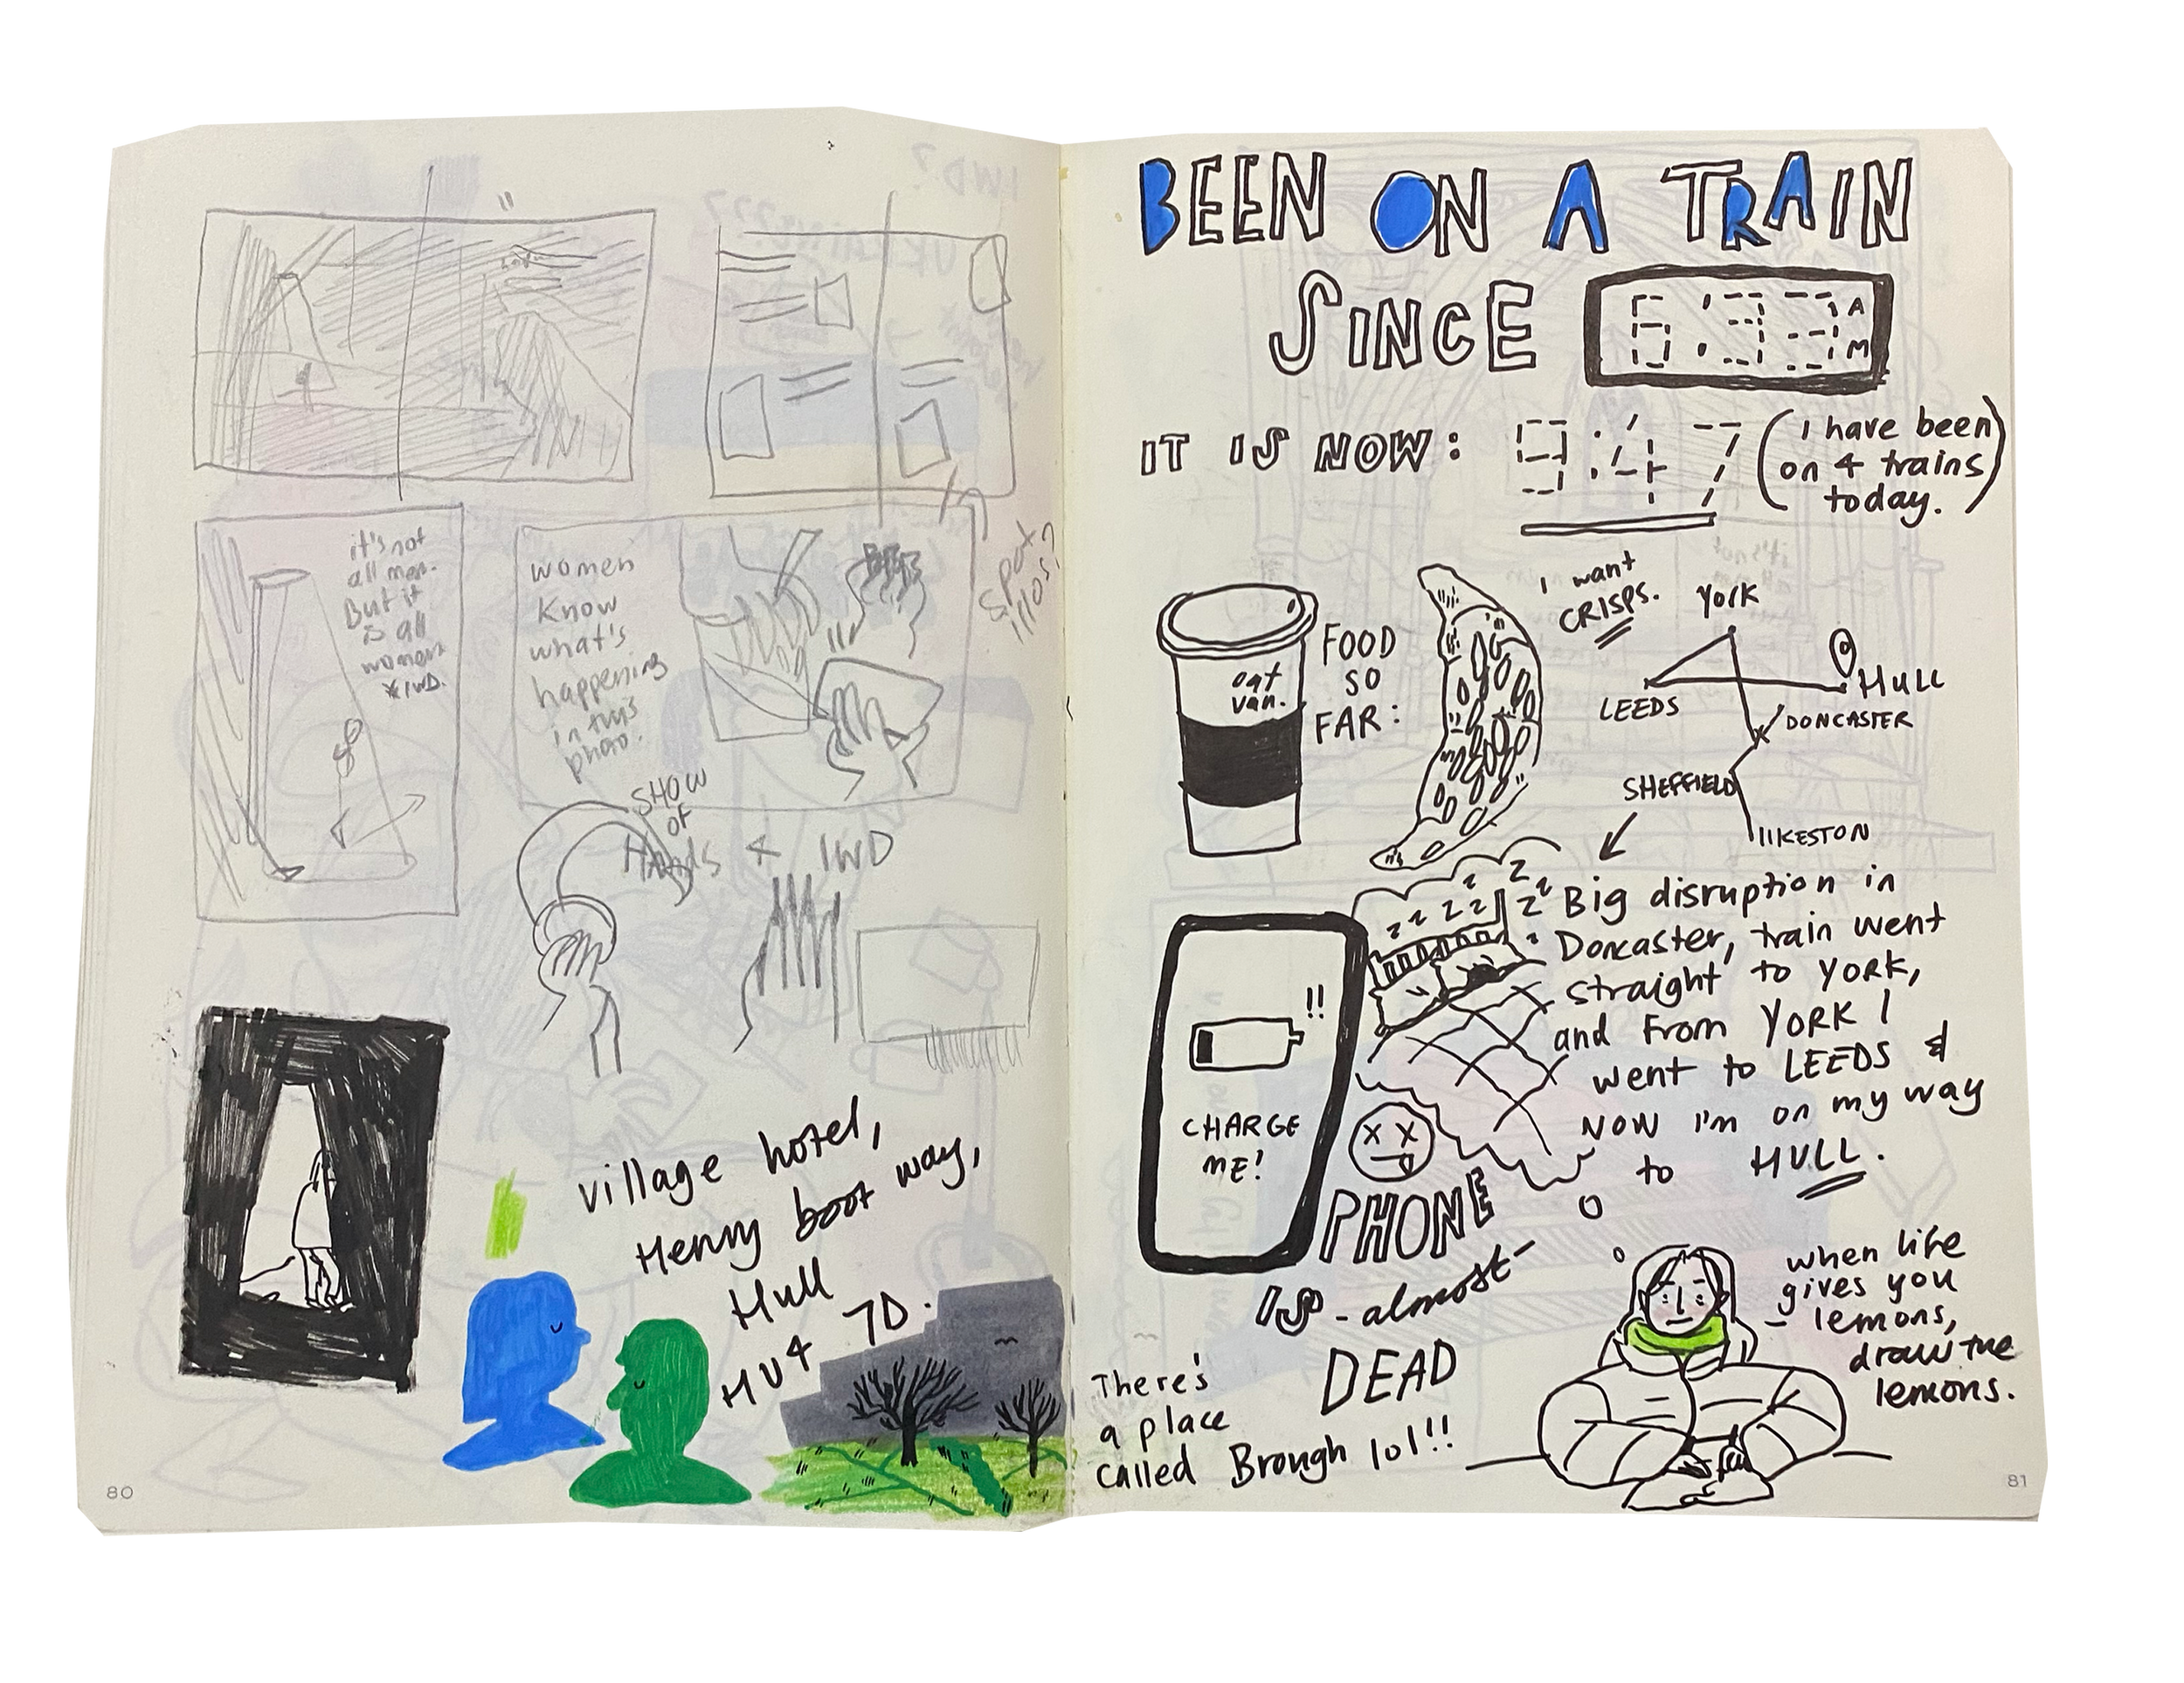 it's not
all men.
But it
is all
women
*IWD.
women
know
what's
happening
in this
photo.
spot
illos?
SHOW
OF
Hands & IWD
village hotel,
Henry boot way,
Hull
HU4 7D.
80
BEEN ON A TRAIN
SINCE
AM
IT IS NOW: 9:47
(I have been
on 4 trains
today.)
oat
van.
FOOD
SO
FAR:
I want
CRISPS.
YORK
LEEDS
HULL
DONCASTER
SHEFFIELD
ILKESTON
zzzzzzzz
Big disruption in
Doncaster, train went
straight to YORK,
and from YORK I
went to LEEDS &
NOW I'm on my way
to HULL.
!!
CHARGE
ME!
PHONE
IS -almost-
DEAD
There's
a place
called Brough lol!!
when life
gives you
lemons,
draw the
lemons.
81